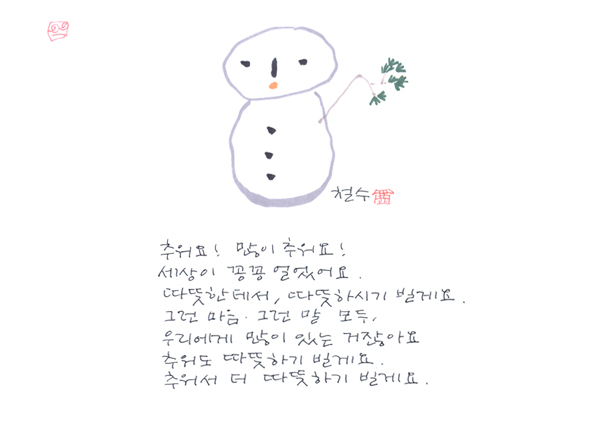 철수
추워요! 많이 추워요!
세상이 꽁꽁 얼었어요.
따뜻한데서, 따뜻하시기 빌게요.
그런 마음. 그런 말 모두,
우리에게 많이 있는 거잖아요
추워도 따뜻하기 빌게요.
추워서 더 따뜻하기 빌게요.